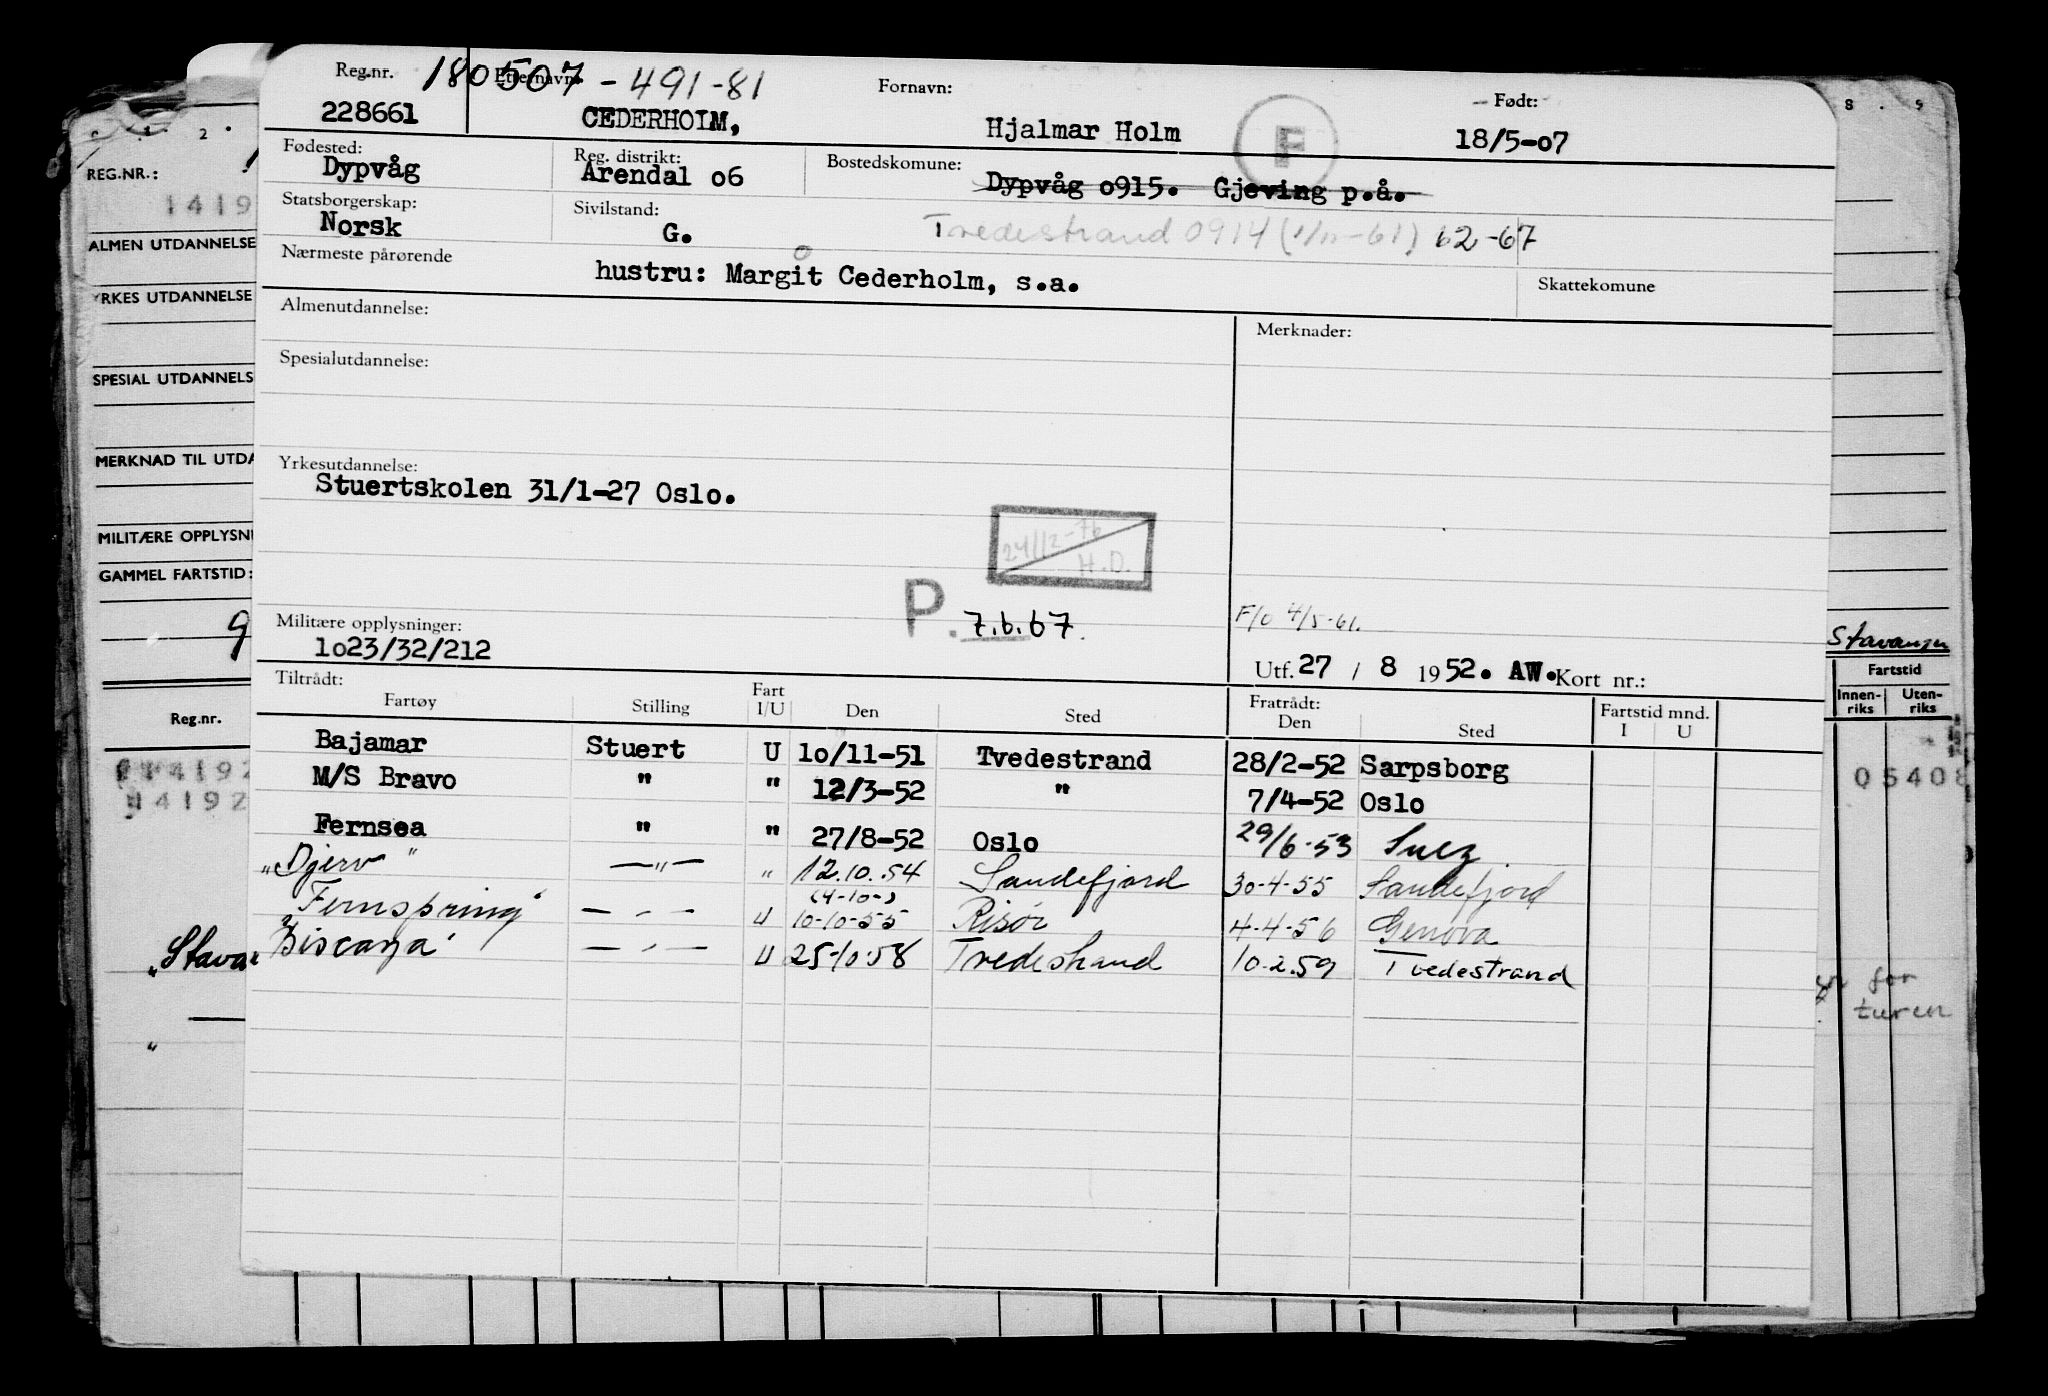 Reg.nr. 180507-491-81 Etternavn: Fornavn: Født:
228661 CEDERHOLM, Hjalmar Holm F 18/5-07
Fødested: Reg. distrikt: Bostedskomune:
Dypvåg Arendal o6 Dypvåg o915. Gjeving p.å.
Statsborgerskap: Sivilstand:
Norsk G. Tvedestrand 0914 (1/11-61) 62-67
Nærmeste pårørende
hustru: Margit Cederholm, s.a. Skattekomune
Almenutdannelse: Merknader:
Spesialutdannelse:
Yrkesutdannelse:
Stuertskolen 31/1-27 Oslo.
24/12-76
H.D.
P. 7.6.67. F/o 4/5-61.
Militære opplysninger:
lo23/32/212
Utf. 27 / 8 1952. AW. Kort nr.:
Tiltrådt: Fratrådt:
Fartøy Stilling Fart I/U Den Sted Den Sted Fartstid mnd. I U
Bajamar Stuert U lo/11-51 Tvedestrand 28/2-52 Sarpsborg
M/S Bravo " " 12/3-52 " 7/4-52 Oslo
Fernsea " " 27/8-52 Oslo 29/6-53 Suez
"Djerv" —"— " 12.10.54 Sandefjord 30-4-55 Sandefjord
(4-10-)
"Fernspring" —"— U 10-10-55 Risør 4-4-56 Genova
"Biscaya" —"— U 25-10-58 Tvedestrand 10.2.59 Tvedestrand
REG.NR.:
1419
ALMEN UTDANNELSE
YRKES UTDANNELSE
SPESIAL UTDANNELS
MERKNAD TIL UTDA
MILITÆRE OPPLYSN
GAMMEL FARTSTID:
9
Reg.nr.
14192
14192
"Stava
8 . 9
Stavanger
Fartstid
Innen-riks Uten-riks
05408
for
turen